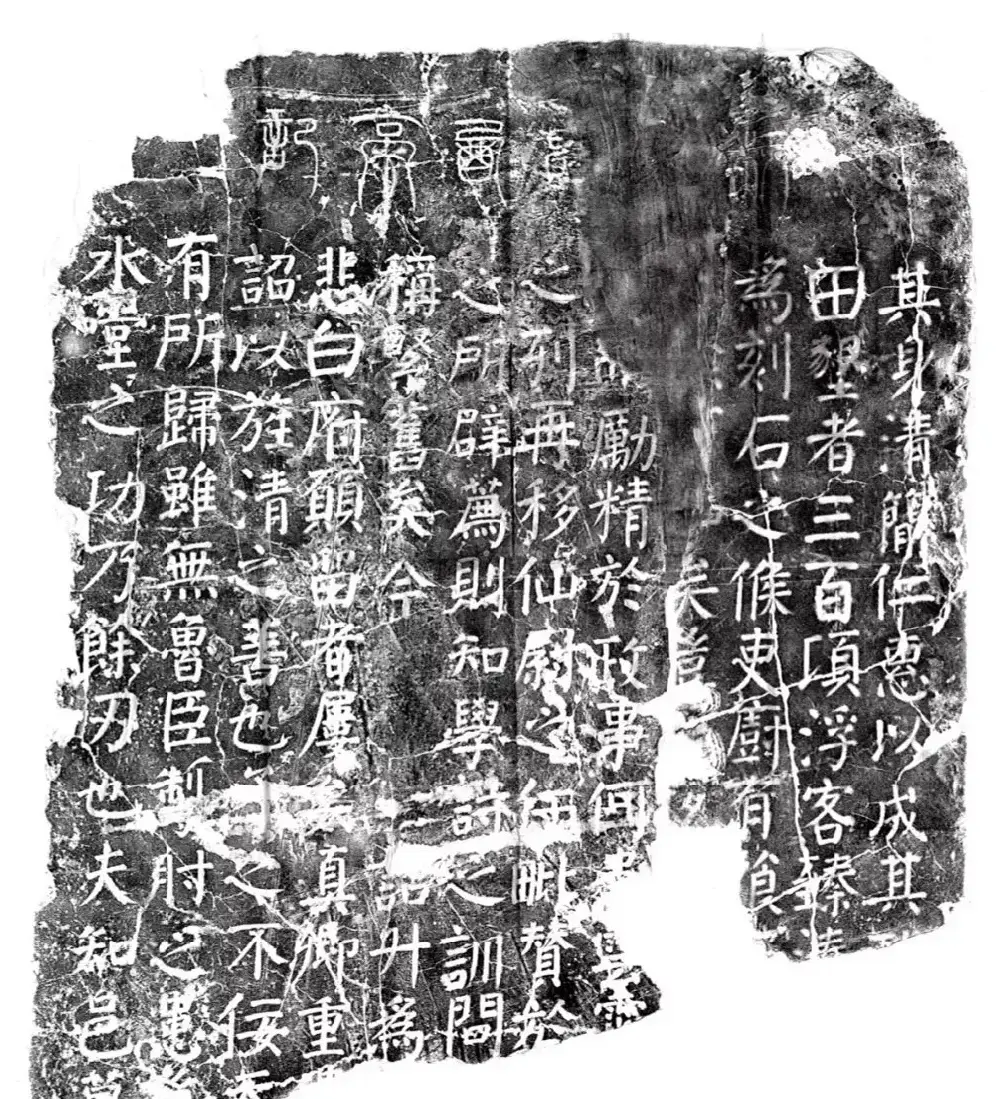 西亭記
其身清簡仁惠以成其
田墾者三百頃浮客臻湊
為刻石之條吏廚有飡
矣豈
勵精於政事何
之列再移仙尉之任毗贊於
之所辟薦則知學詩之訓間
稱緊舊矣今詔升為
悲白府願留者屢真卿重
詔以旌清之善也之不佞忝
有所歸雖無魯臣掣肘之患
水堂之功乃餘刃也夫知邑莫